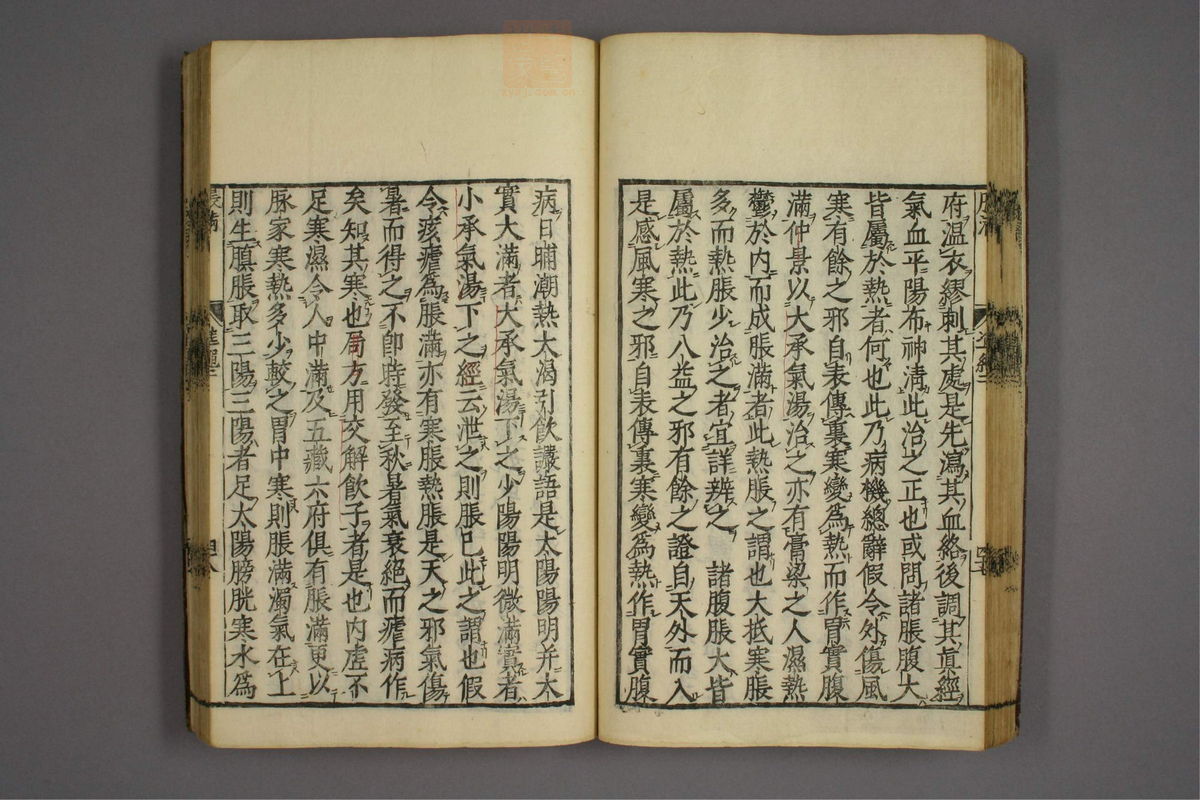 府溫衣繆刺其處是先瀉其血絡後調其眞經
氣血平陽布神淸此治之正也或問諸脹腹大
皆屬於熱者何也此乃病機總辭假令外傷風
寒有餘之邪自表傳裏寒變爲熱而作胃實腹
滿仲景以大承氣湯治之亦有膏粱之人濕熱
鬱於內而成脹滿者此熱脹之謂也大抵寒脹
多而熱脹少治之者宜詳辨之　諸腹脹大皆
屬於熱此乃八益之邪有餘之證自天外而入
是感風寒之邪自表傳裏寒變爲熱作胃實腹
病日晡潮熱大渴引飮讝語是太陽陽明并大
實大滿者大承氣湯下之少陽陽明微滿實者
小承氣湯下之經云泄之則脹已此之謂也假
令痎瘧爲脹滿亦有寒脹熱脹是天之邪氣傷
暑而得之不卽時發至秋暑氣衰絕而瘧病作
矣知其寒也局方用交解飮子者是也內虛不
足寒濕令人中滿及五藏六府俱有脹滿更以
脉家寒熱多少較之胃中寒則脹滿濁氣在上
則生䐜脹取三陽三陽者足太陽膀胱寒水爲
脹滿